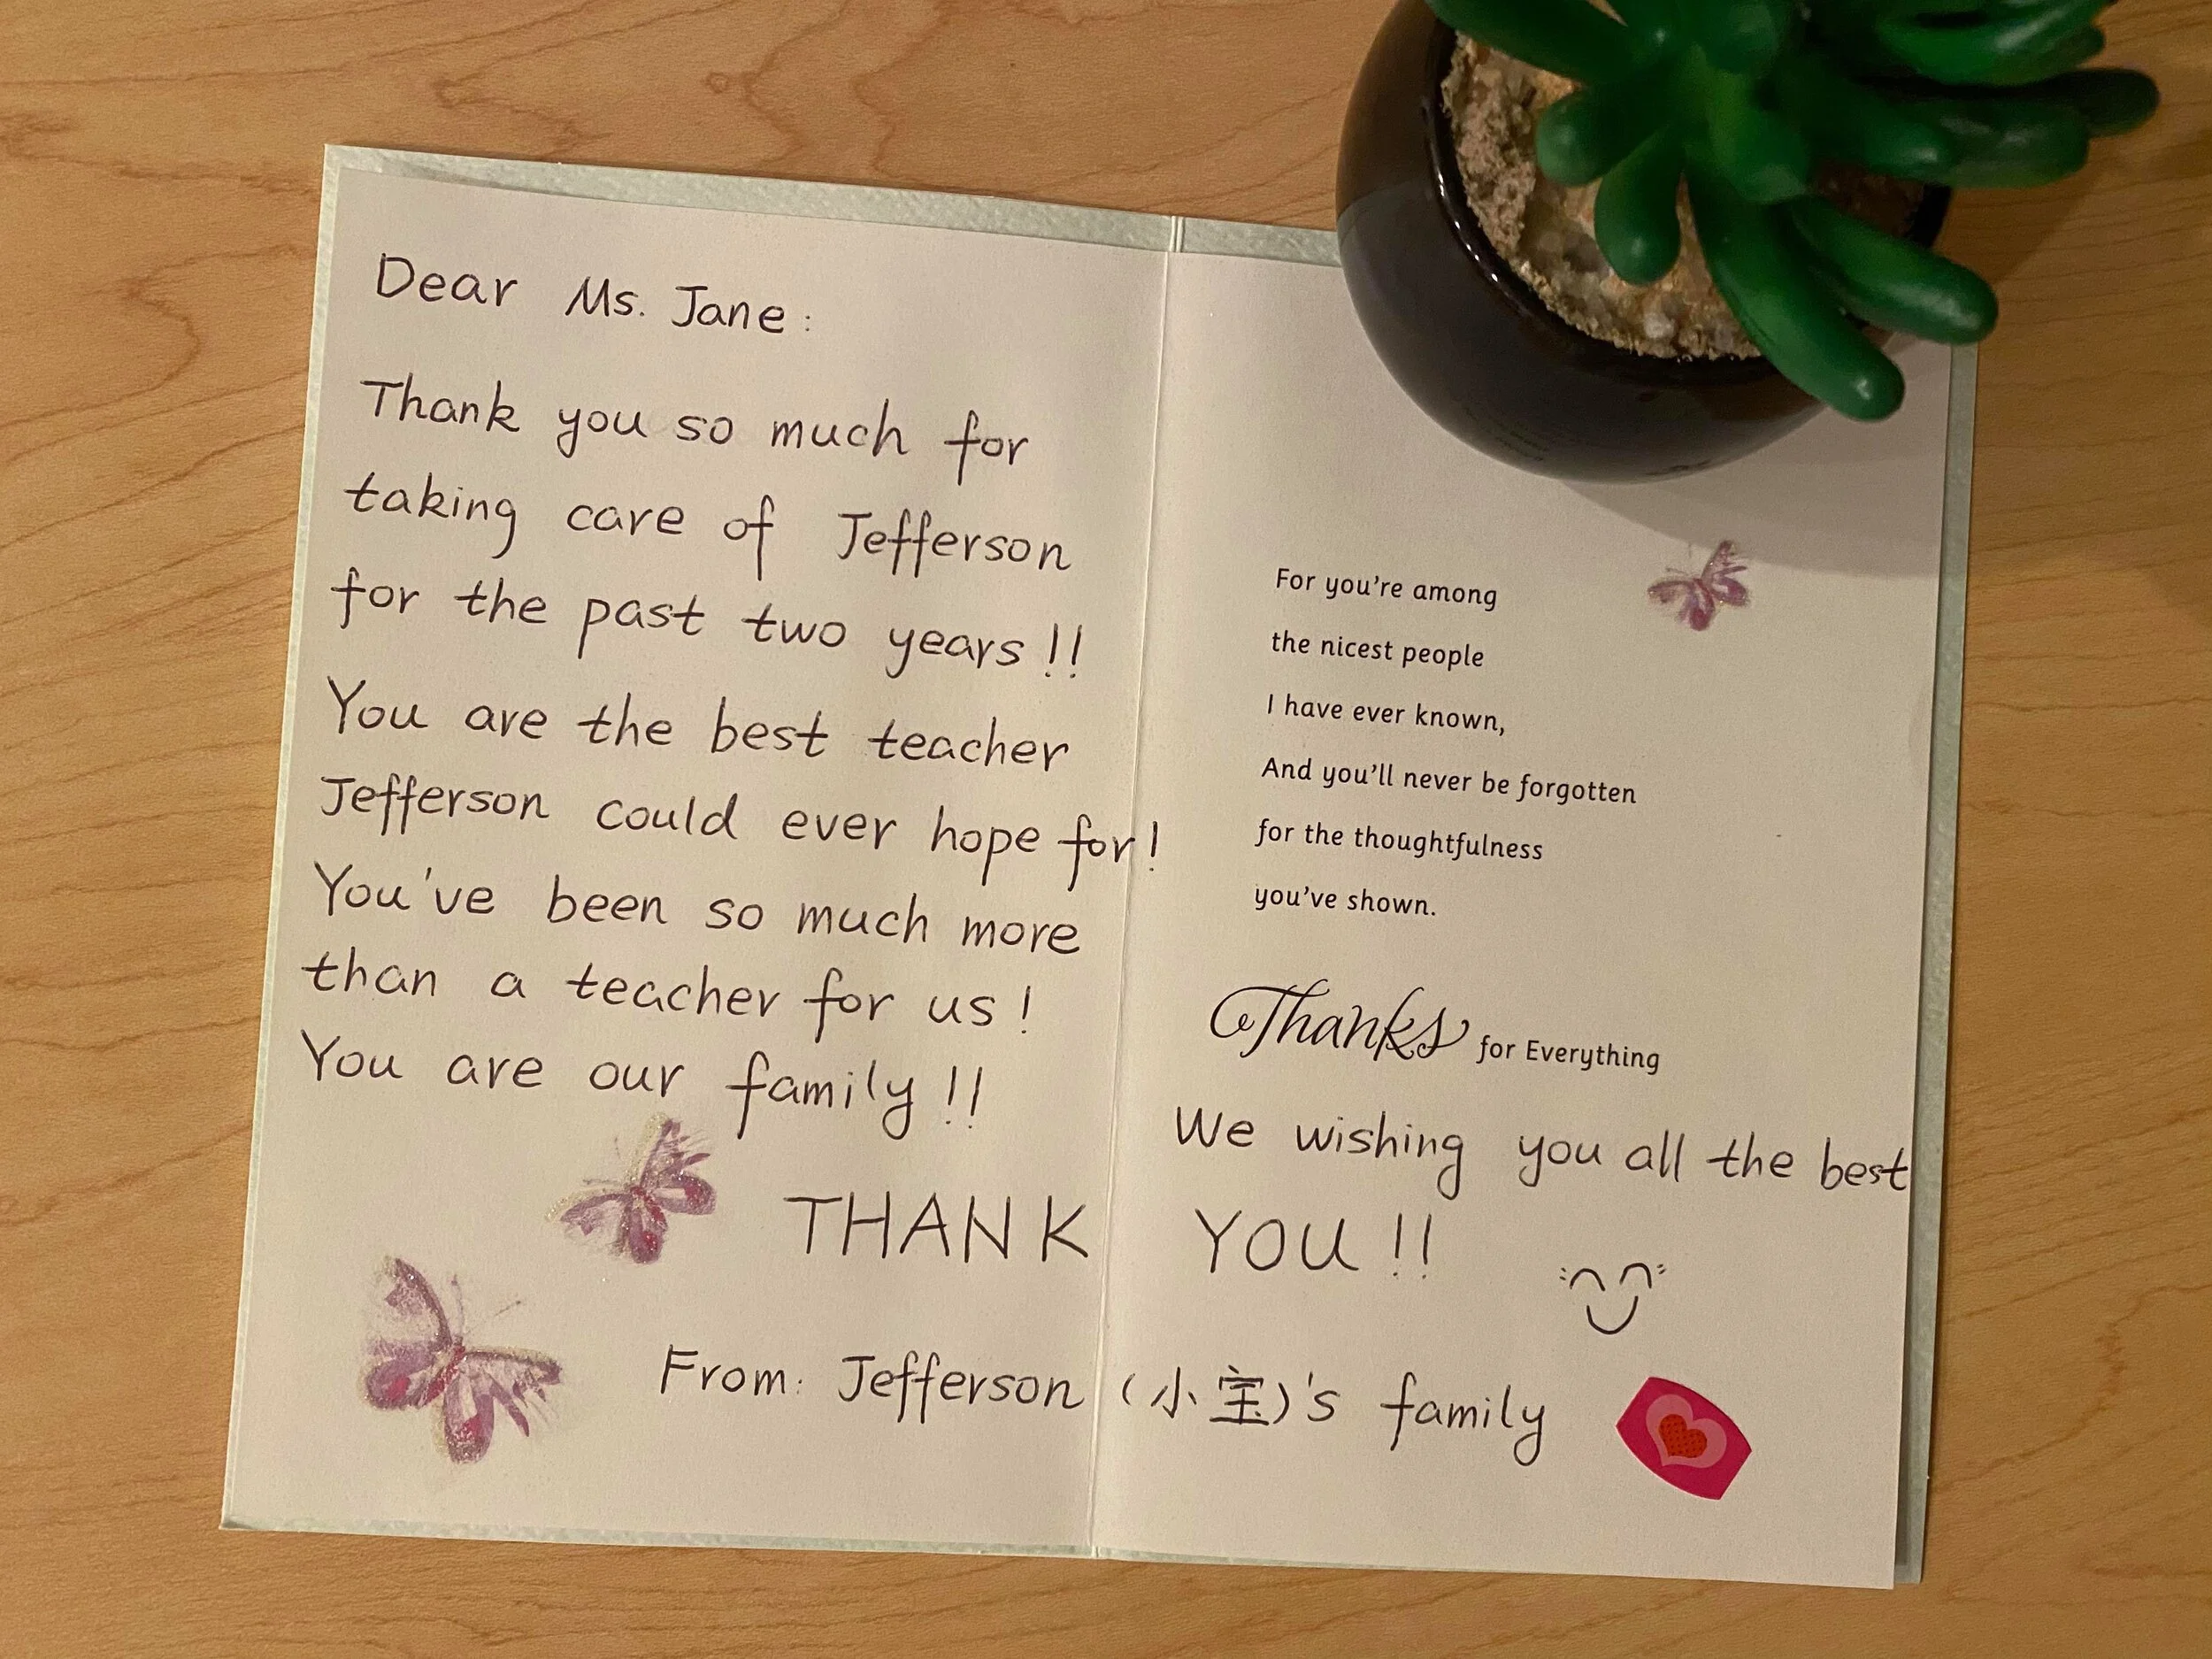 Dear Ms. Jane:
Thank you so much for
taking care of Jefferson
for the past two years!!
You are the best teacher
Jefferson could ever hope for!
You've been so much more
than a teacher for us!
You are our family!!
For you're among
the nicest people
I have ever known,
And you'll never be forgotten
for the thoughtfulness
you've shown.
Thanks for Everything
We wishing you all the best
THANK YOU!!
From: Jefferson (小宝)'s family